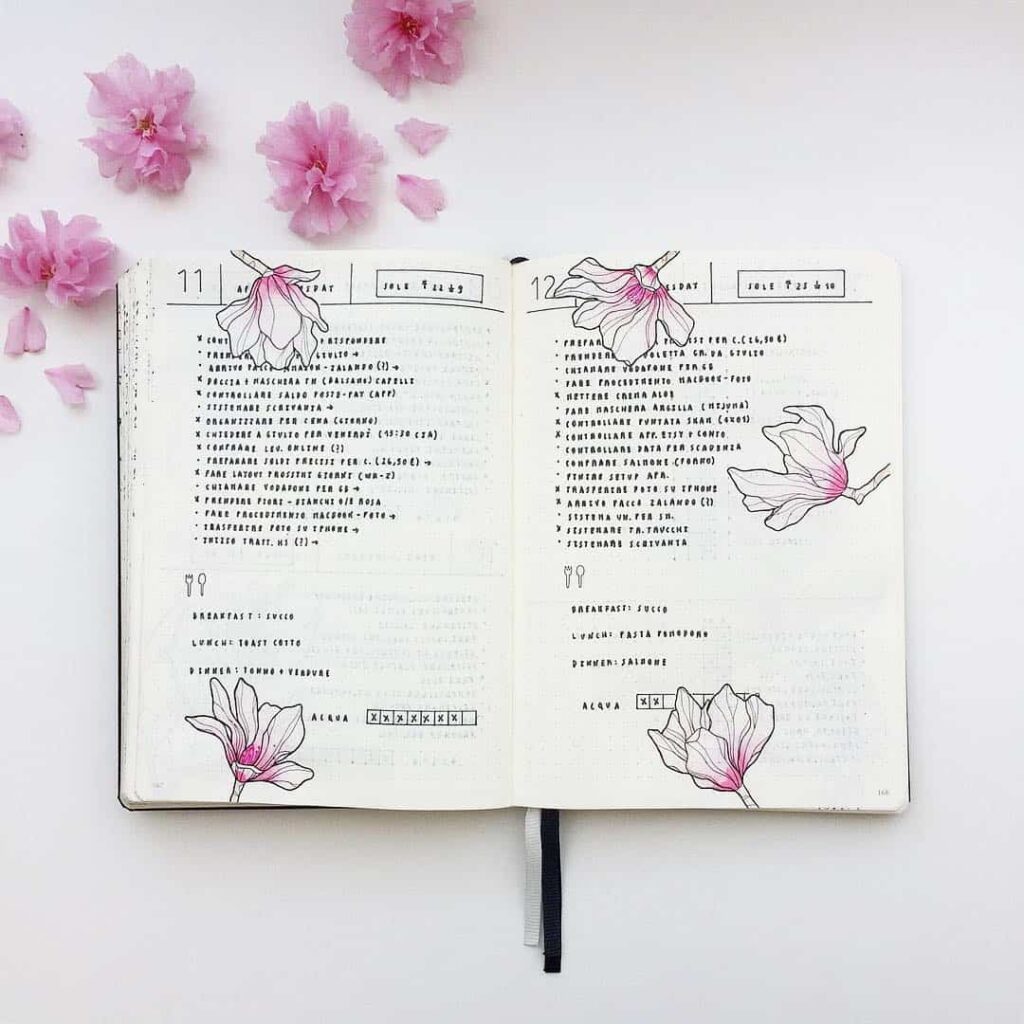 11
SOLE ↑22 ↓9
x CONT RISPONDERE
• PREN GIULIO →
• ARRIVO PACCO AMAZON - ZALANDO (?) →
x DOCCIA + MASCHERA PH (BALSAMO) CAPELLI
x CONTROLLARE SALDO POSTE-PAY (APP)
• SISTEMARE SCRIVANIA →
x ORGANIZZARE PER CENA (GIORNO)
x CHIEDERE A GIULIO PER VENERDÌ (15:30 CIA)
x COMPRARE LEV. ONLINE (?)
• PREPARARE SOLDI PRECISI PER C. (26,50 €) →
x FARE LAYOUT PROSSIMI GIORNI (WK-2)
• CHIAMARE VODAFONE PER GB →
x PRENDERE FIORI - BIANCHI O/E ROSA
• FARE PROCEDIMENTO MACBOOK-FOTO →
• TRASFERIRE FOTO SU IPHONE →
• INIZIO TRATT. HS (?) →
BREAKFAST: SUCCO
LUNCH: TOAST COTTO
DINNER: TONNO + VERDURE
ACQUA x x x x x x x
12
SDAY
SOLE ↑25 ↓10
• PREPAR PER C. (26,50 €)
• PRENDERE DA GIULIO
• CHIAMARE VODAFONE PER GB
• FARE PROCEDIMENTO MACBOOK-FOTO
x METTERE CREMA ALOE
• FARE MASCHERA ARGILLA
x CONTROLLARE PUNTATA SKAM
x CONTROLLARE APP. ETSY + CONTO
• CONTROLLARE DATA PER SCADENZA
• COMPRARE SALMONE (FORNO)
FINIRE SETUP APR.
x TRASFERIRE FOTO SU IPHONE
x ARRIVO PACCO ZALANDO (?)
• SISTEMA
x SISTEMARE TRUCCHI
• SISTEMARE SCRIVANIA
BREAKFAST: SUCCO
LUNCH: PASTA POMODORO
DINNER: SALMONE
ACQUA x x
168